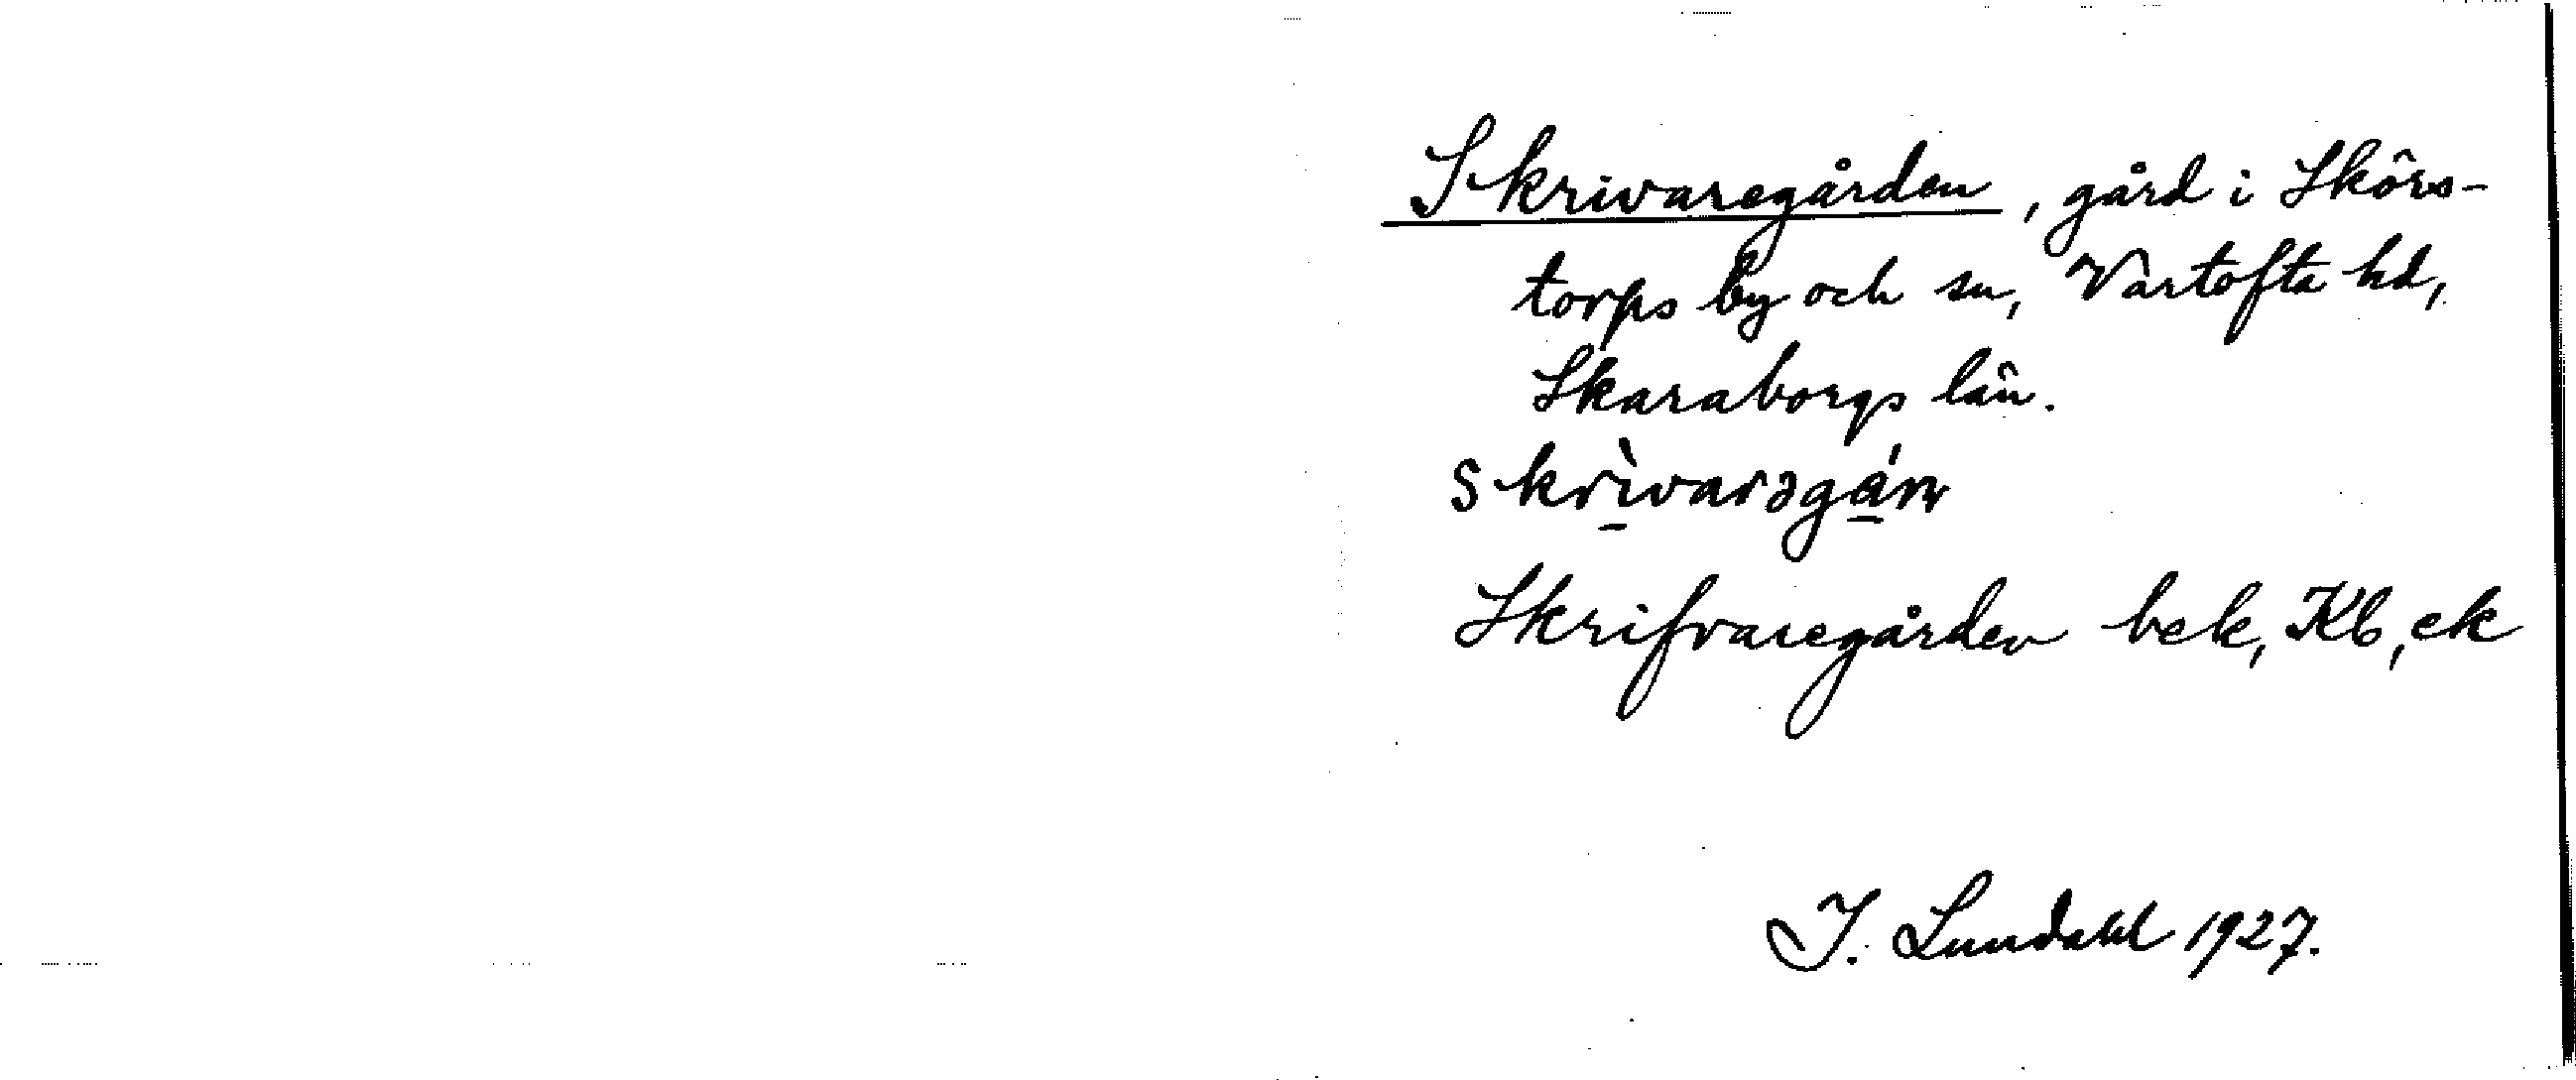 Skrivaregården, gård i Skörs-
torps by och sn, Vartofta hd,
Skaraborgs län.
skrì̠varəgá̠rn
Skrifvaregården bek, Kb, ek
I. Lundahl 1927.